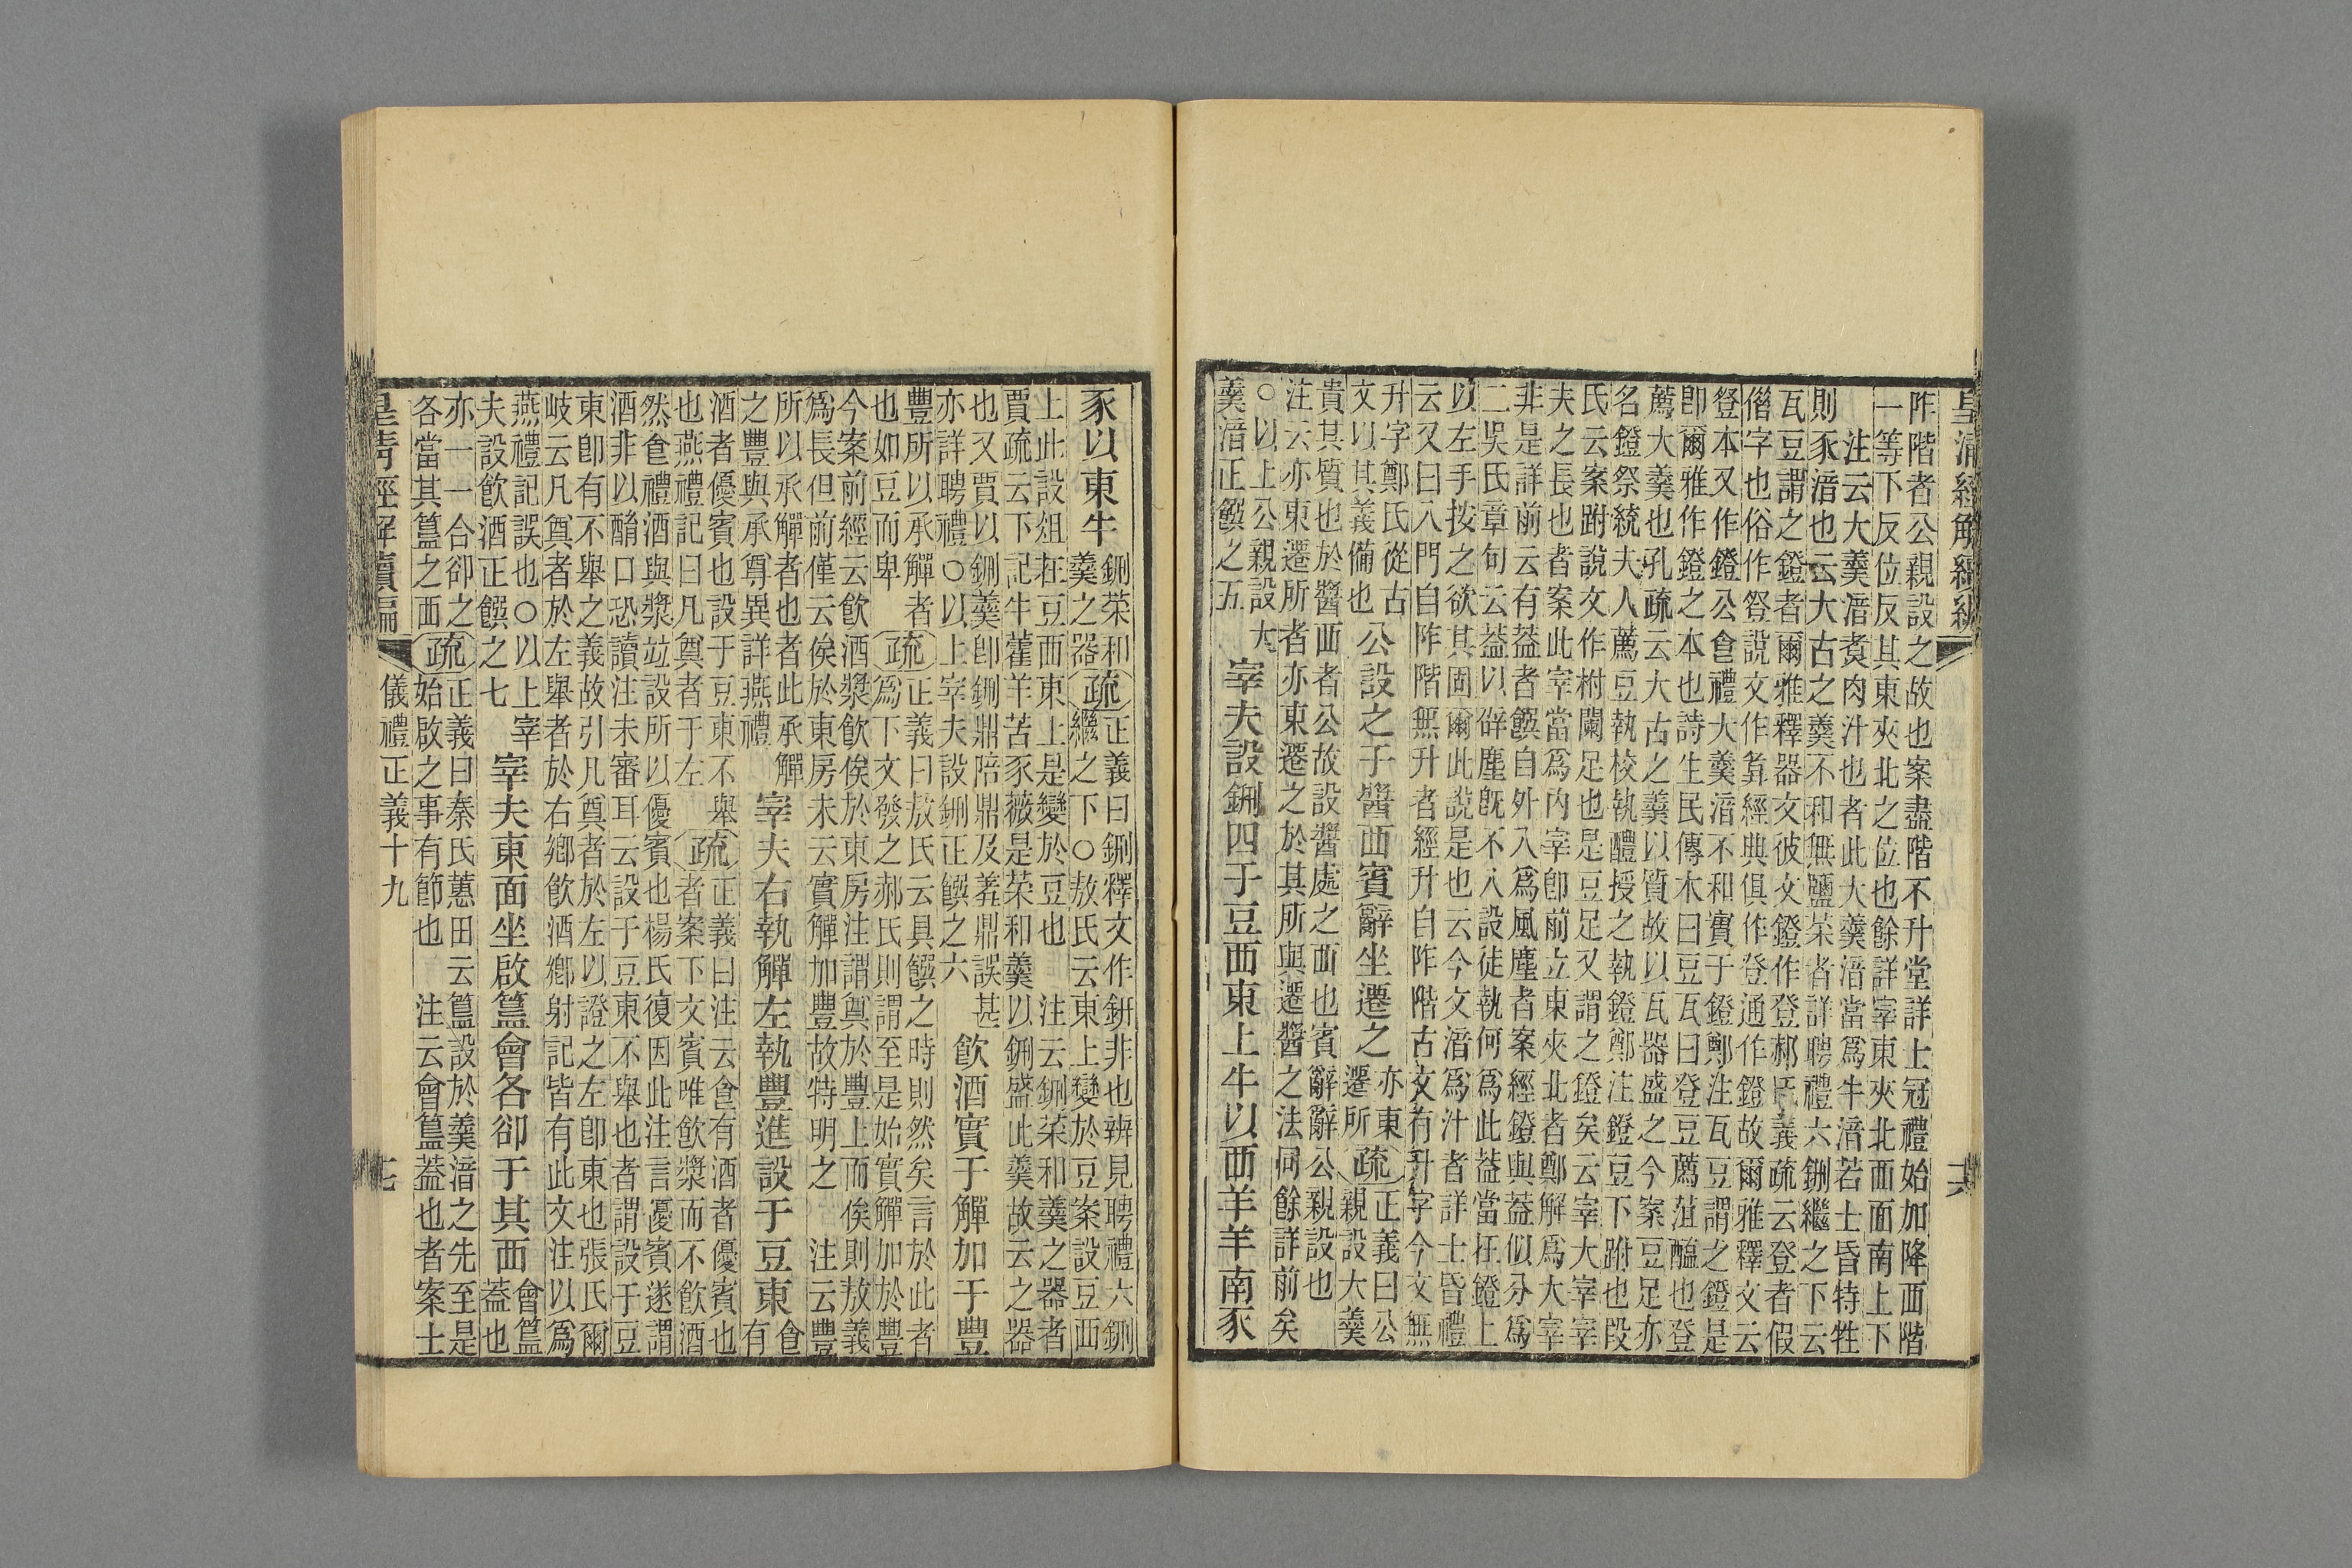 皇清經解續編
阼階者公親設之故也案盡階不升堂詳士冠禮始加降西階
一等下反位反其東夾北之位也餘詳宰東夾北西面南上下
注云大羹湆煑肉汁也者此大羹湆當爲牛湆若士昏特牲
則豕湆也云大古之羹不和無鹽菜者詳聘禮六鉶繼之下云
瓦豆謂之鐙者爾雅釋器文彼文鐙作登郝氏義疏云登者假
偕字也俗作豋說文作䇺經典俱作登通作鐙故爾雅釋文云
豋本又作鐙公食禮大羹湆不和實于鐙鄭注瓦豆謂之鐙是
卽爾雅作鐙之本也詩生民傳木曰豆瓦曰登豆薦菹醢也登
薦大羹也孔疏云大古之羹以質故以瓦器盛之今案豆足亦
名鐙祭統夫人薦豆執校執醴授之執鐙鄭注鐙豆下跗也段
氏云案跗說文作柎闌足也是豆足又謂之鐙矣云宰大宰宰
夫之長也者案此宰當爲內宰卽前立東夾北者鄭解爲大宰
非是詳前云有葢者饌自外入爲風塵者案經鐙與葢似分爲
二吳氏章句云葢以辟塵旣不入設徒執何爲此葢當在鐙上
以左手按之欲其固爾此說是也云今文湆爲汁者詳士昏禮
云又曰入門自阼階無升者經升自阼階古文有升字今文無
升字鄭氏從古
文以其義備也
公設之于醬西賓辭坐遷之
亦東
遷所
疏
正義曰公
親設大羹
貴其質也於醬西者公故設醬處之西也賓辭辭公親設也
注云亦東遷所者亦東遷之於其所與遷醬之法同餘詳前矣
○以上公親設大
羹湆正饌之五
宰夫設鉶四于豆西東上牛以西羊羊南豕
豕以東牛
鉶菜和
羹之器
疏
正義曰鉶釋文作鈃非也辨見聘禮六鉶
繼之下○敖氏云東上變於豆案設豆西
上此設俎在豆西東上是變於豆也　注云鉶菜和羹之器者
賈疏云下記牛藿羊苦豕薇是菜和羹以鉶盛此羹故云之器
也又賈以鉶羹卽鉶鼎陪鼎及羞鼎誤甚
亦詳聘禮○以上宰夫設鉶正饌之六
飲酒實于觶加于豐
豐所以承觶者
也如豆而卑
疏
正義曰敖氏云具饌之時則然矣言於此者
爲下文發之郝氏則謂至是始實觶加於豐
今案前經云飲酒漿飲俟於東房注謂奠於豐上而俟則敖義
爲長但前僅云俟於東房未云實觶加豐故特明之　注云豐
所以承觶者也者此承觶
之豐與承尊異詳燕禮
宰夫右執觶左執豐進設于豆東
食有
酒者優賓也設于豆東不舉
也燕禮記曰凡奠者于左
疏
正義曰注云食有酒者優賓也
者案下文賓唯飲漿而不飲酒
然食禮酒與漿竝設所以優賓也楊氏復因此注言優賓遂謂
酒非以酳口恐讀注未審耳云設于豆東不舉也者謂設于豆
東卽有不舉之義故引凡奠者於左以證之左卽東也張氏爾
岐云凡奠者於左舉者於右鄉飲酒鄉射記皆有此文注以爲
燕禮記誤也○以上宰
夫設飲酒正饌之七
宰夫東面坐啟簋會各卻于其西
會簋
蓋也
亦一一合卻之
各當其簋之西
疏
正義曰秦氏蕙田云簋設於羹湆之先至是
始啟之事有節也　注云會簋葢也者案士
皇清經解續編
儀禮正義十九